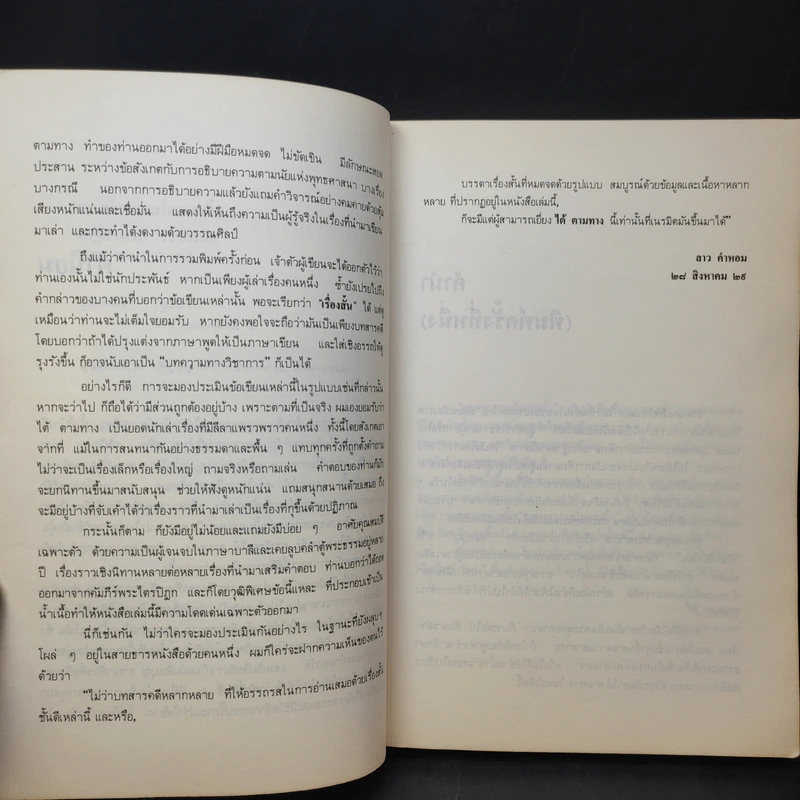 ตามทาง ทำของท่านออกมาได้อย่างมีฝีมือหมดจด ไม่ขัดเขิน มีลักษณะสอด
ประสาน ระหว่างข้อสังเกตกับการอธิบายความตามนัยแห่งพุทธศาสนา บางเรื่อง
บางกรณี นอกจากการอธิบายความแล้วยังแถมคำวิจารณ์อย่างคมคายด้วยสุ้ม
เสียงหนักแน่นและเชื่อมั่น แสดงให้เห็นถึงความเป็นผู้รู้จริงในเรื่องที่นำมาเขียน
มาเล่า และกระทำได้งดงามด้วยวรรณศิลป์
ถึงแม้ว่าคำนำในการรวมพิมพ์ครั้งก่อน เจ้าตัวผู้เขียนจะได้ออกตัวไว้ว่า
ท่านเองนั้นไม่ใช่นักประพันธ์ หากเป็นเพียงผู้เล่าเรื่องคนหนึ่ง ซ้ำยังเปรยไปถึง
คำกล่าวของบางคนที่บอกว่าข้อเขียนเหล่านั้น พอจะเรียกว่า "เรื่องสั้น" ได้ แต่ดู
เหมือนว่าท่านจะไม่เต็มใจยอมรับ หากยังคงพอใจจะถือว่ามันเป็นเพียงบทสารคดี
โดยบอกว่าถ้าได้ปรุงแต่งจากภาษาพูดให้เป็นภาษาเขียน และใส่เชิงอรรถให้ดู
รุงรังขึ้น ก็อาจนับเอาเป็น "บทความทางวิชาการ" ก็เป็นได้
อย่างไรก็ดี การจะมองประเมินข้อเขียนเหล่านี้ในรูปแบบเช่นที่กล่าวนั้น
หากจะว่าไป ก็ถือได้ว่ามีส่วนถูกต้องอยู่บ้าง เพราะตามที่เป็นจริง ผมเองยอมรับว่า
ได้ ตามทาง เป็นยอดนักเล่าเรื่องที่มีลีลาแพรวพราวคนหนึ่ง ทั้งนี้โดยสังเกตเอา
จากที่ แม้ในการสนทนากันอย่างธรรมดาและพื้น ๆ แทบทุกครั้งที่ถูกตั้งคำถาม
ไม่ว่าจะเป็นเรื่องเล็กหรือเรื่องใหญ่ ถามจริงหรือถามเล่น คำตอบของท่านก็มัก
จะยกนิทานขึ้นมาสนับสนุน ช่วยให้ฟังดูหนักแน่น แถมสนุกสนานด้วยเสมอ ถึง
จะมีอยู่บ้างที่จับเค้าได้ว่าเรื่องราวที่นำมาเล่าเป็นเรื่องที่กุขึ้นด้วยปฏิภาณ
กระนั้นก็ตาม ก็ยังมีอยู่ไม่น้อยและแถมยังมีบ่อย ๆ อาศัยคุณสมบัติ
เฉพาะตัว ด้วยความเป็นผู้เจนจบในภาษาบาลีและเคยลูบคลำตู้พระธรรมอยู่หลาย
ปี เรื่องราวเชิงนิทานหลายต่อหลายเรื่องที่นำมาเสริมคำตอบ ท่านบอกว่าได้ถอด
ออกมาจากคัมภีร์พระไตรปิฎก และก็โดยวุฒิพิเศษข้อนี้แหละ ที่ประกอบเข้าเป็น
น้ำเนื้อทำให้หนังสือเล่มนี้มีความโดดเด่นเฉพาะตัวออกมา
นี่ก็เช่นกัน ไม่ว่าใครจะมองประเมินกันอย่างไร ในฐานะที่ยังผลุบๆ
โผล่ ๆ อยู่ในสายธารหนังสือด้วยคนหนึ่ง ผมก็ใคร่จะฝากความเห็นของตนไว้
ด้วยว่า
"ไม่ว่าบทสารคดีหลากหลาย ที่ให้อรรถรสในการอ่านเสมอด้วยเรื่องสั้น
ชั้นดีเหล่านี้ และหรือ,
บรรดาเรื่องสั้นที่หมดจดด้วยรูปแบบ สมบูรณ์ด้วยข้อมูลและเนื้อหาหลาก
หลาย ที่ปรากฏอยู่ในหนังสือเล่มนี้,
ก็จะมีแต่ผู้สามารถเยี่ยง ได้ ตามทาง นี้เท่านั้นที่เนรมิตมันขึ้นมาได้"
ลาว คำหอม
๒๘ สิงหาคม ๒๙